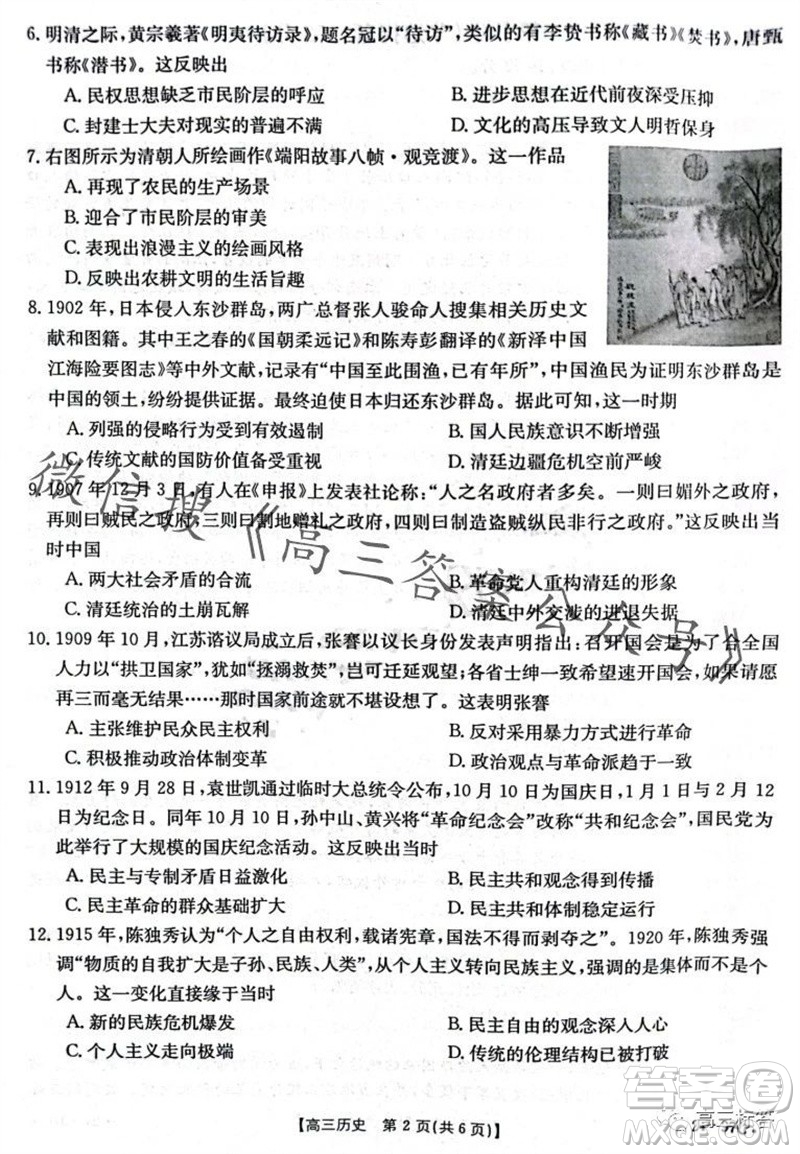 6. 明清之际，黄宗羲著《明夷待访录》，题名冠以“待访”，类似的有李贽书称《藏书》《焚书》，唐甄
书称《潜书》。这反映出
A. 民权思想缺乏市民阶层的呼应
B. 进步思想在近代前夜深受压抑
C. 封建士大夫对现实的普遍不满
D. 文化的高压导致文人明哲保身
7. 右图所示为清朝人所绘画作《端阳故事八帧·观竞渡》。这一作品
A. 再现了农民的生产场景
B. 迎合了市民阶层的审美
C. 表现出浪漫主义的绘画风格
D. 反映出农耕文明的生活旨趣
8. 1902 年，日本侵入东沙群岛，两广总督张人骏命人搜集相关历史文
献和图籍。其中王之春的《国朝柔远记》和陈寿彭翻译的《新译中国
江海险要图志》等中外文献，记录着“中国至此围渔，已有年所”，中国渔民为证明东沙群岛是
中国的领土，纷纷提供证据。最终迫使日本归还东沙群岛。据此可知，这一时期
A. 列强的侵略行为受到有效遏制
B. 国人民族意识不断增强
C. 传统文献的国防价值备受重视
D. 清廷边疆危机空前严峻
9. 1907 年 12 月 3 日，有人在《申报》上发表社论称：“人之名政府者多矣。一则曰媚外之政府，
再则曰贼民之政府，三则曰割地赠礼之政府，四则曰制造盗贼纵民非行之政府。”这反映出当
时中国
A. 两大社会矛盾的合流
B. 革命党人重构清廷的形象
C. 清廷统治的土崩瓦解
D. 清廷中外交涉的进退失据
10. 1909 年 10 月，江苏谘议局成立后，张謇以议长身份发表声明指出：召开国会是当今全国
人力以“拱卫国家”，如“拯溺救焚”，岂可迁延观望；各省士绅一致希望速开国会，若清廷再
三再四而毫无结果……那时国家前途就不堪设想了。这表明张謇
A. 主张维护民众民主权利
B. 反对采用暴力方式进行革命
C. 积极推动政治体制变革
D. 政治观点与革命派趋于一致
11. 1912 年 9 月 28 日，袁世凯通过临时大总统令公布，10 月 10 日为国庆日，1 月 1 日与 2 月 12
日为纪念日。同年 10 月 10 日，孙中山、黄兴将“革命纪念会”改称“共和纪念会”，北京为
此举行了大规模的国庆纪念活动。这反映出当时
A. 民主与专制矛盾日益激化
B. 民主与共和观念得到传播
C. 民主革命的群众基础扩大
D. 民主共和的观念深入人心
12. 1915 年，陈独秀认为“个人之自由权利，载诸宪章，国法不得而剥夺之”。1920 年，陈独秀强
调“物质的自我扩大是子孙、民族、人类”，从个人主义转向民族主义，甚而是世界主义、个
人。这一变化直接缘于当时
A. 新的民族危机爆发
B. 民主自由的观念深入人心
C. 个人主义走向极端
D. 传统的伦理结构已被打破
【高三历史 第 2 页(共 6 页)】
微信搜《高三答案公众号》
答案圈
高三标答